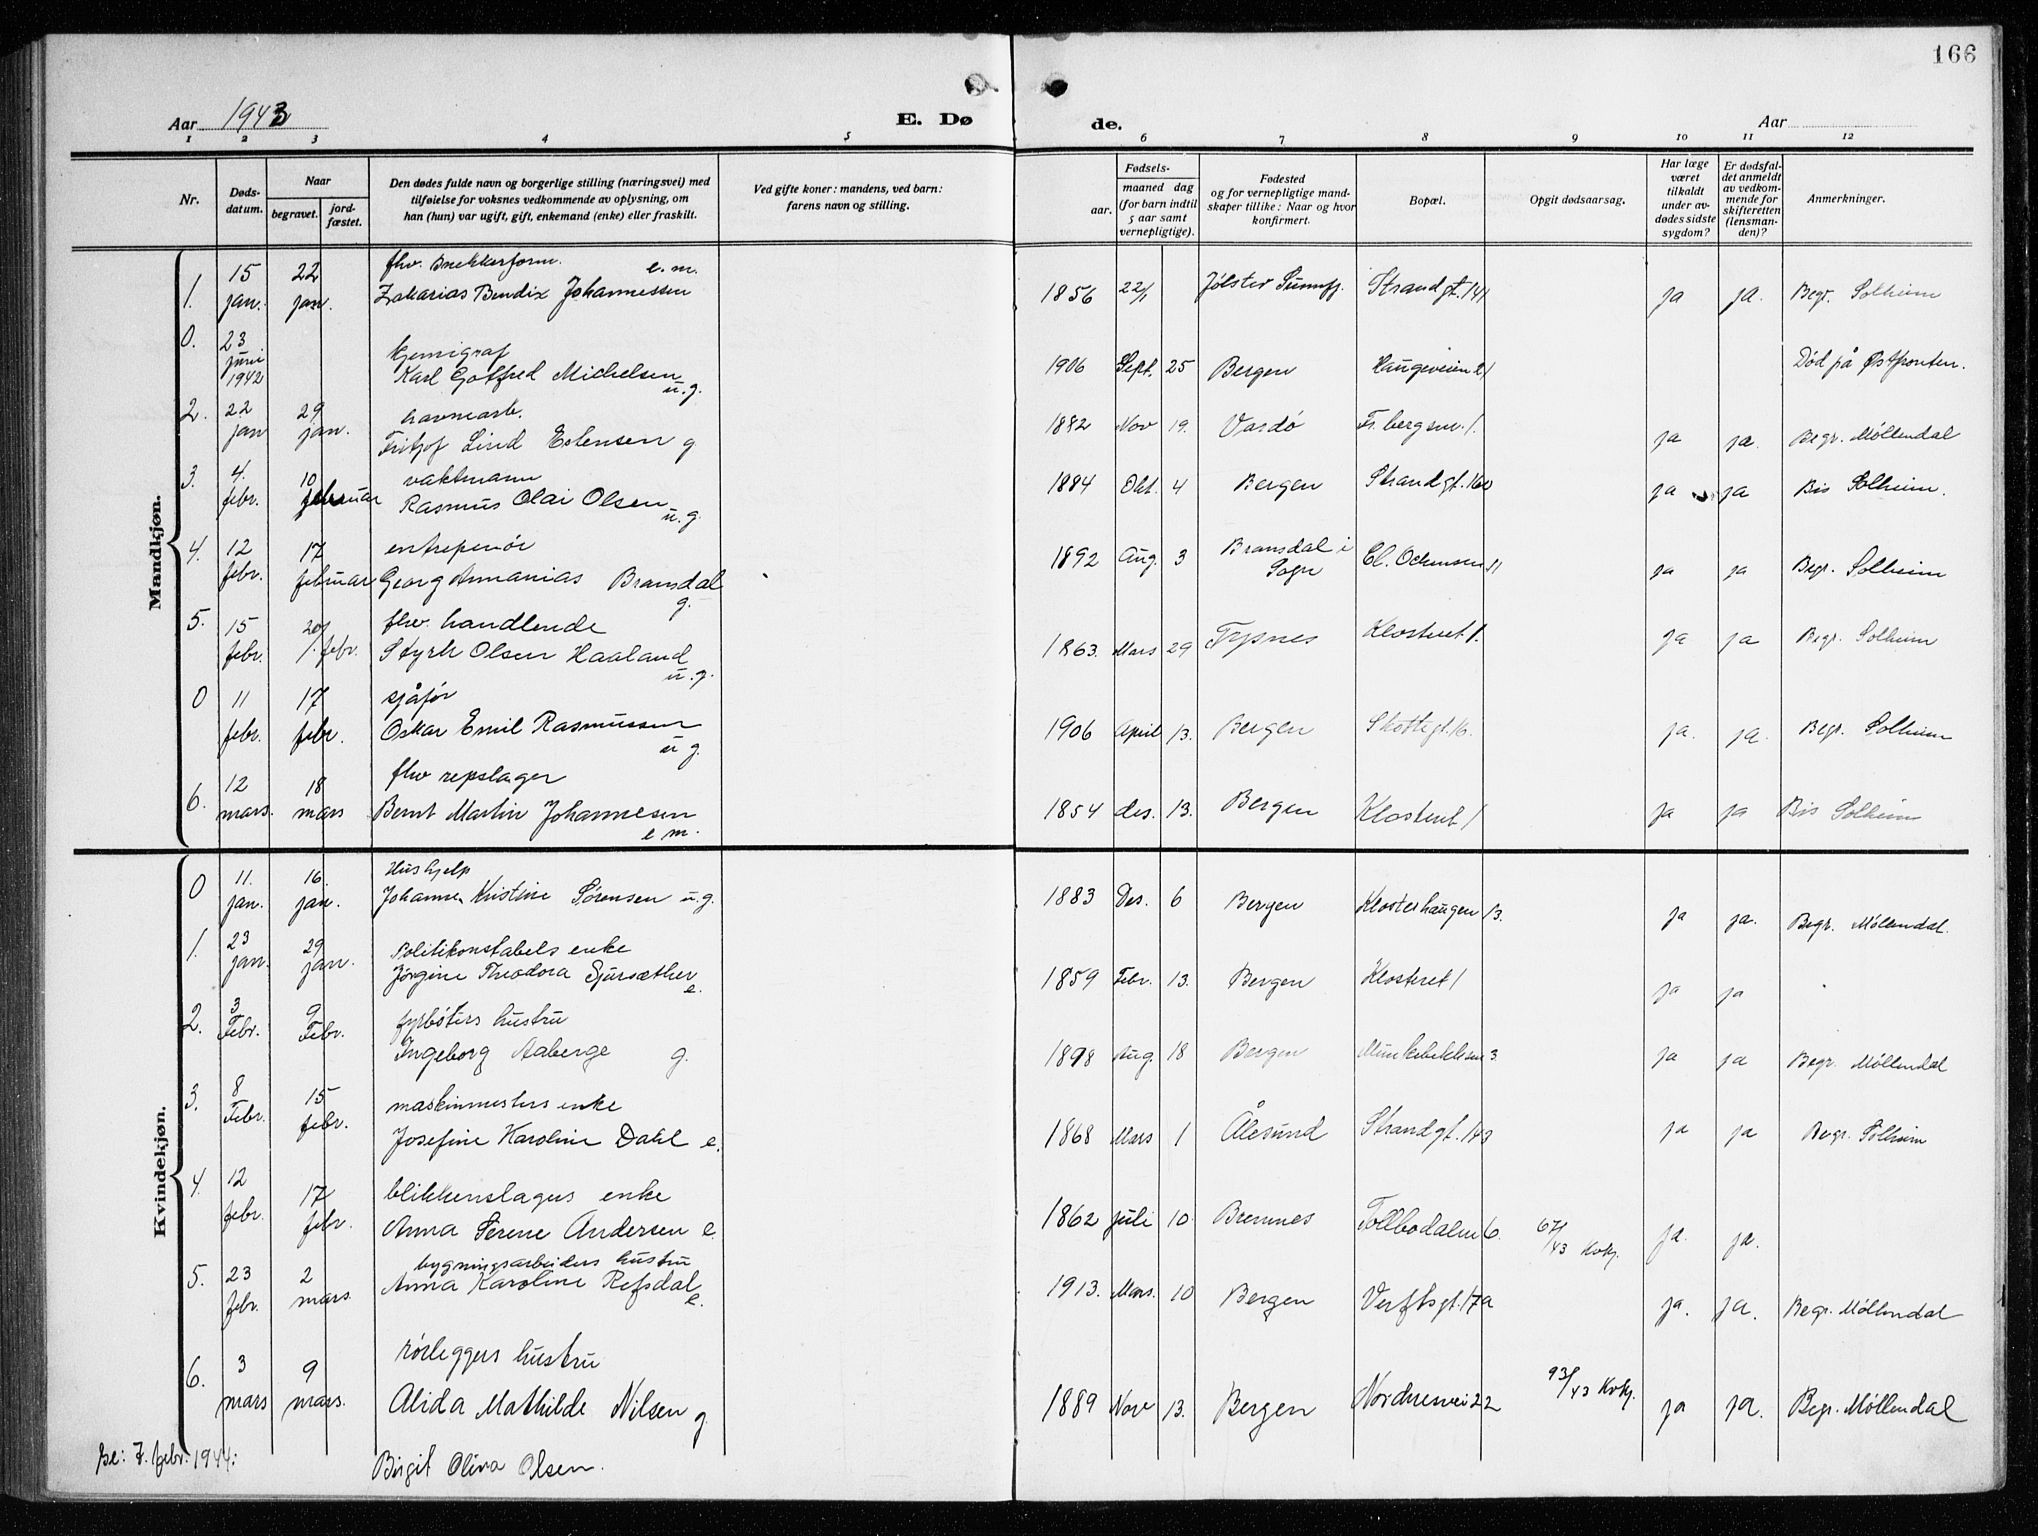 166
Aar 1943
E. Dø
de.
Aar
1 2 3 4 5 6 7 8 9 10 11 12
Nr.
Døds-
datum.
Naar
begravet.
jord-
fæstet.
Den dødes fulde navn og borgerlige stilling (næringsvei) med
tilføielse for voksnes vedkommende av oplysning, om
han (hun) var ugift, gift, enkemand (enke) eller fraskilt.
Ved gifte koner: mandens, ved barn:
farens navn og stilling.
Fødsels-
aar.
maaned dag
(for barn indtil
5 aar samt
vernepligtige).
Fødested
og for vernepligtige mand-
skaper tillike: Naar og hvor
konfirmert.
Bopæl.
Opgit dødsaarsag.
Har læge
været
tilkaldt
under av-
dødes sidste
sygdom?
Er dødsfal-
det anmeldt
av vedkom-
mende for
skifteretten
(lensman-
den)?
Anmerkninger.
Mandkjøn.
1. 15 jan. 22 jan. fhv. snekkerform. e. m.
Zakarias Bendix Johannessen
1856 22/1 Jølster Sunnfj. Strandgt. 141 ja ja. Begr. Solheim
0. 23 juni 1942 kjemigraf
Karl Gotfred Michelsen u. g.
1906 Sept. 25 Bergen Haugeveien 21 Død på Østfronten.
2. 22 jan 29 jan. havnearb.
Fritjof Lind Estensen g
1882 Nov 19. Vardö Fr. bergsm. 1. ja ja. Begr. Møllendal
3. 4. febr. 10 februar vaktmann
Rasmus Olai Olsen u. g.
1884 Okt. 4 Bergen Strandgt. 160 ja ja Bis Solheim.
4. 12 febr. 17 februar entrepenör
Georg Annanias Bransdal g.
1892 Aug. 3 Bransdal i Sogn Cl. Ockensen 11 ja ja Begr. Solheim
5. 15 febr. 20/1. febr. fhv. handlende
Styrk Olsen Haaland u. g.
1863. Mars 29 Tysnes Klosteret 1. ja ja Begr. Solheim
0 11 febr. 17 febr. sjåfør
Oskar Emil Rasmussen u g.
1906 April 13. Bergen Skottegt. 16. ja. ja. Begr. Solheim
6. 12 mars. 18 mars fhv repslager
Bernt Martin Johannesen e m.
1854 des. 13. Bergen Klosteret 1 ja ja Bis Solheim
Kvindekjøn.
0 11. jan. 16. jan. Hushjelp
Johanne Kristine Sørensen u. g.
1883 Des. 6 Bergen Klosterhaugen 13. ja ja. Begr. Møllendal.
1. 23 jan. 29 jan. Politikonstabels enke
Jørgine Theodora Gjursæther e.
1859 Febr. 13. Bergen Klosteret 1 ja ja
2. 3 Febr. 9 Febr. fyrbøters hustru
Ingeborg Aaberge g.
1898 Aug. 18 Bergen Munkebekksm 3. ja ja Begr. Møllendal
3. 8 Febr. 15 febr. maskinmesters enke
Josefine Karoline Dahl e.
1868 Mars 1 Ålesund Strandgt. 143 ja ja Begr. Solheim
4. 12 febr. 17 febr. blikkenslagers enke
Anna Serene Andersen e
1862 juli 10. Bremnes Tollbodalm 6. 67/43 Kvkj. ja. ja.
5. 23 febr. 2 mars bygningsarbeiders hustru
Anna Karoline Refsdal e.
1913. Mars. 10 Bergen Verftsgt. 17a ja. ja. Begr. Møllendal
6. 3 mars 9 mars. rørleggers hustru
Alida Mathilde Nilsen g
1889 Nov 13. Bergen Nordnesvei 22 93/43 Kvkj. ja ja. Begr. Møllendal
7. febr. 1944: Birgit Oliva Olsen.